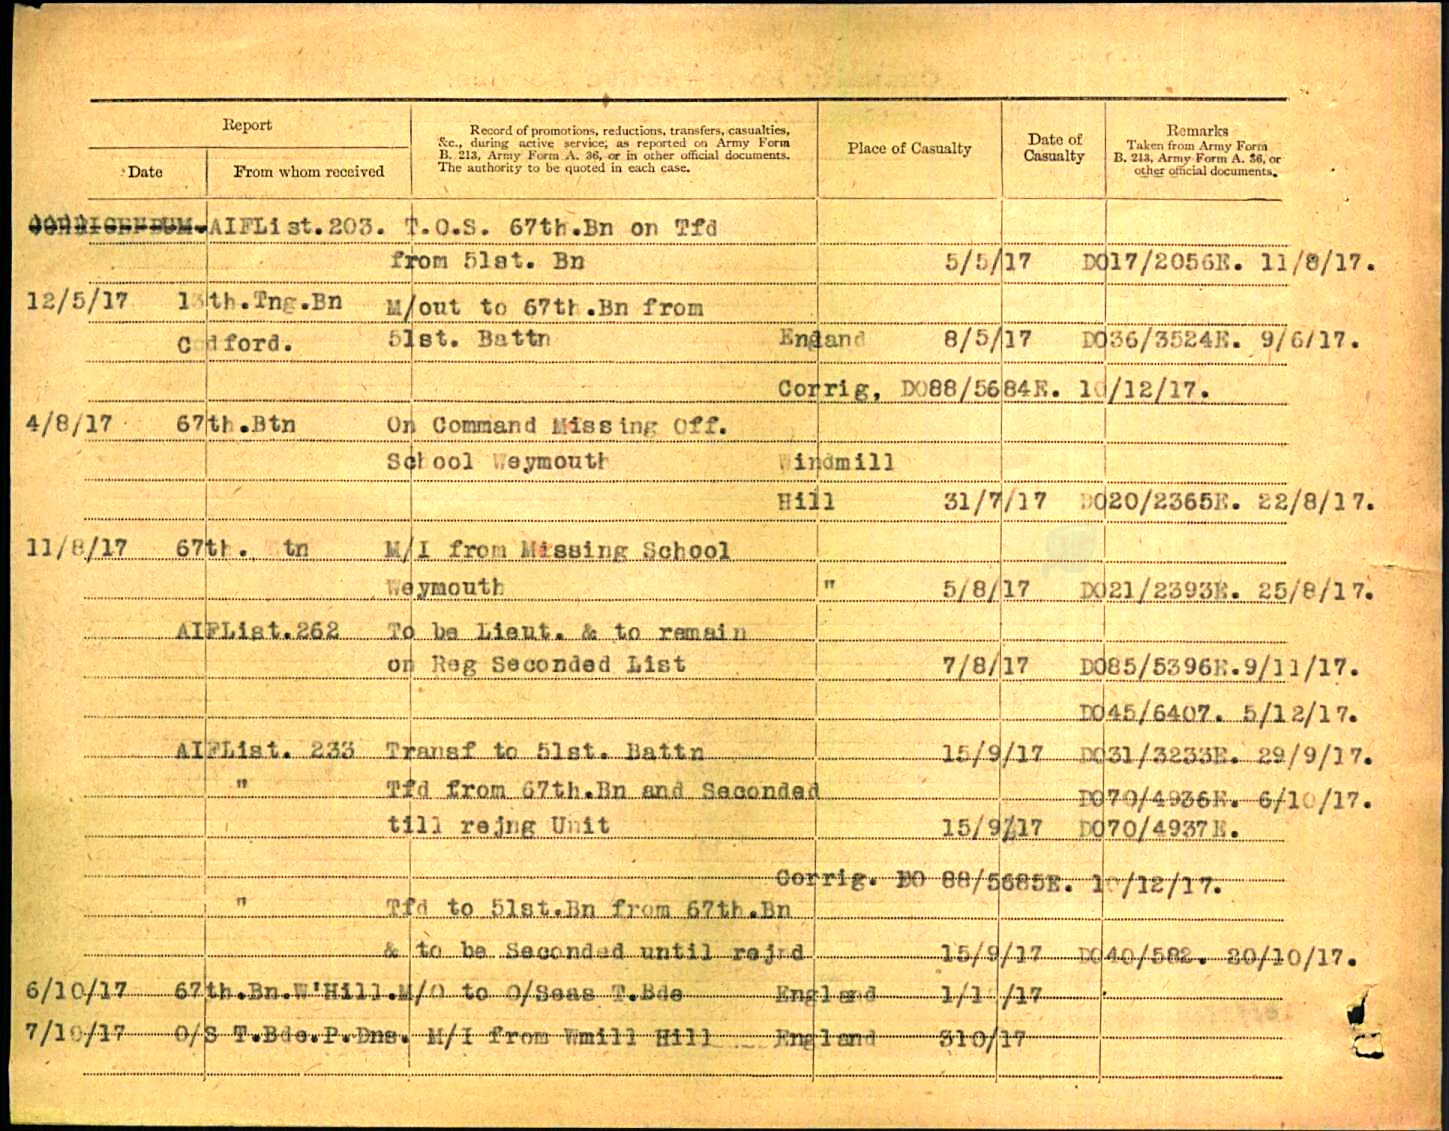 Report
Record of promotions, reductions, transfers, casualties,
&c., during active service, as reported on Army Form
B. 213, Army Form A. 36, or in other official documents.
The authority to be quoted in each case.
Place of Casualty
Date of
Casualty
Remarks
Taken from Army Form
B. 213, Army Form A. 36, or
other official documents.
Date
From whom received
CORRIGENDUM. AIFList.203. T.O.S. 67th.Bn on Tfd
from 51st. Bn 5/5/17 DO17/2056E. 11/8/17.
12/5/17 13th.Tng.Bn M/out to 67th.Bn from
Codford. 51st. Battn England 8/5/17 DO36/3524E. 9/6/17.
Corrig, DO88/5684E. 10/12/17.
4/8/17 67th.Btn On Command Missing Off.
School Weymouth Windmill
Hill 31/7/17 DO20/2365E. 22/8/17.
11/8/17 67th. tn M/I from Missing School
Weymouth " 5/8/17 DO21/2393E. 25/8/17.
AIFList.262 To be Lieut. & to remain
on Reg Seconded List 7/8/17 DO85/5396E.9/11/17.
DO45/6407. 5/12/17.
AIFList. 233 Transf to 51st. Battn 15/9/17 DO31/3233E. 29/9/17.
" Tfd from 67th.Bn and Seconded DO70/4936E. 6/10/17.
till rejng Unit 15/9/17 DO70/4937E.
Corrig. DO 88/5685E. 10/12/17.
" Tfd to 51st.Bn from 67th.Bn
& to be Seconded until rejnd 15/9/17 DO40/582. 20/10/17.
6/10/17 67th.Bn.W'Hill. M/O to O/Seas T.Bde England 1/1 /17
7/10/17 O/S T.Bde.P.Dns. M/I from Wmill Hill England 310/17